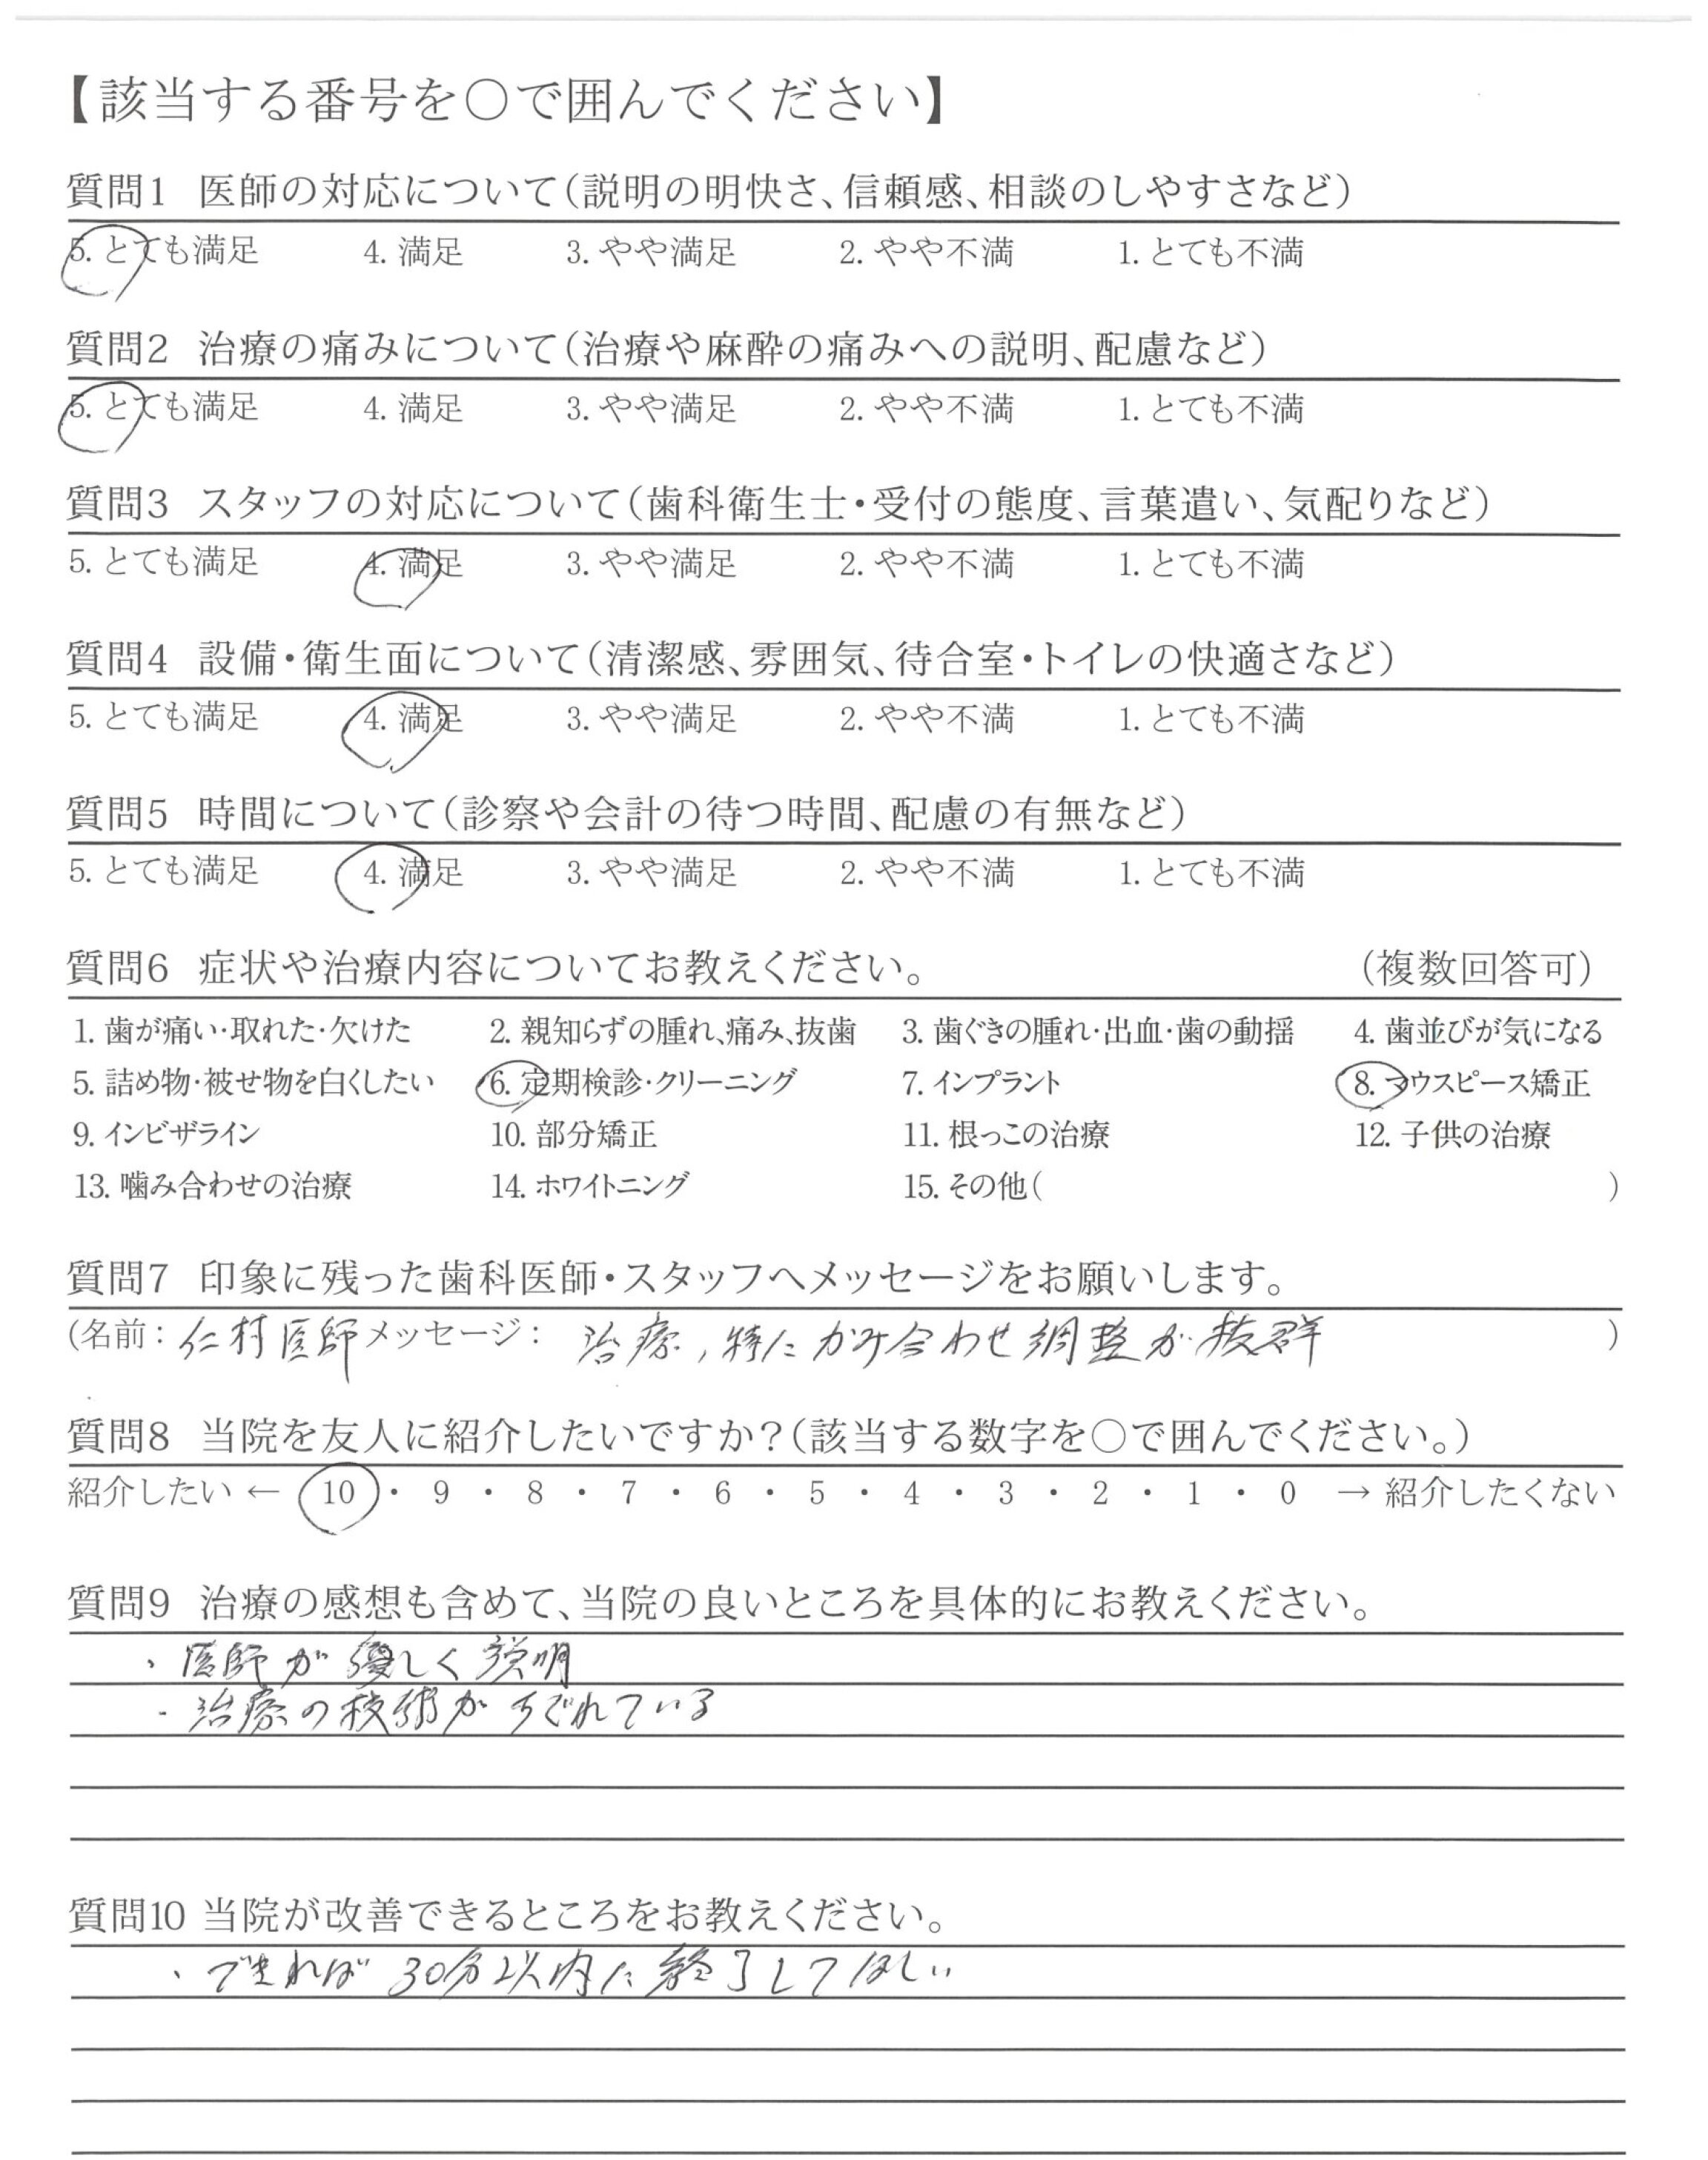 【該当する番号を○で囲んでください】
質問1 医師の対応について（説明の明快さ、信頼感、相談のしやすさなど）
5. とても満足 4. 満足 3. やや満足 2. やや不満 1. とても不満
質問2 治療の痛みについて（治療や麻酔の痛みへの説明、配慮など）
5. とても満足 4. 満足 3. やや満足 2. やや不満 1. とても不満
質問3 スタッフの対応について（歯科衛生士・受付の態度、言葉遣い、気配りなど）
5. とても満足 4. 満足 3. やや満足 2. やや不満 1. とても不満
質問4 設備・衛生面について（清潔感、雰囲気、待合室・トイレの快適さなど）
5. とても満足 4. 満足 3. やや満足 2. やや不満 1. とても不満
質問5 時間について（診察や会計の待つ時間、配慮の有無など）
5. とても満足 4. 満足 3. やや満足 2. やや不満 1. とても不満
質問6 症状や治療内容についてお教えください。 （複数回答可）
1. 歯が痛い・取れた・欠けた 2. 親知らずの腫れ、痛み、抜歯 3. 歯ぐきの腫れ・出血・歯の動揺 4. 歯並びが気になる
5. 詰め物・被せ物を白くしたい 6. 定期検診・クリーニング 7. インプラント 8. マウスピース矯正
9. インビザライン 10. 部分矯正 11. 根っこの治療 12. 子供の治療
13. 噛み合わせの治療 14. ホワイトニング 15. その他（ ）
質問7 印象に残った歯科医師・スタッフへメッセージをお願いします。
（名前：仁村医師 メッセージ： 治療，特に かみ合わせ調整が抜群 ）
質問8 当院を友人に紹介したいですか？（該当する数字を○で囲んでください。）
紹介したい ← 10 ・ 9 ・ 8 ・ 7 ・ 6 ・ 5 ・ 4 ・ 3 ・ 2 ・ 1 ・ 0 → 紹介したくない
質問9 治療の感想も含めて、当院の良いところを具体的にお教えください。
・医師が優しく説明
・治療の技術がすぐれている
質問10 当院が改善できるところをお教えください。
・できれば30分以内に終了してほしい